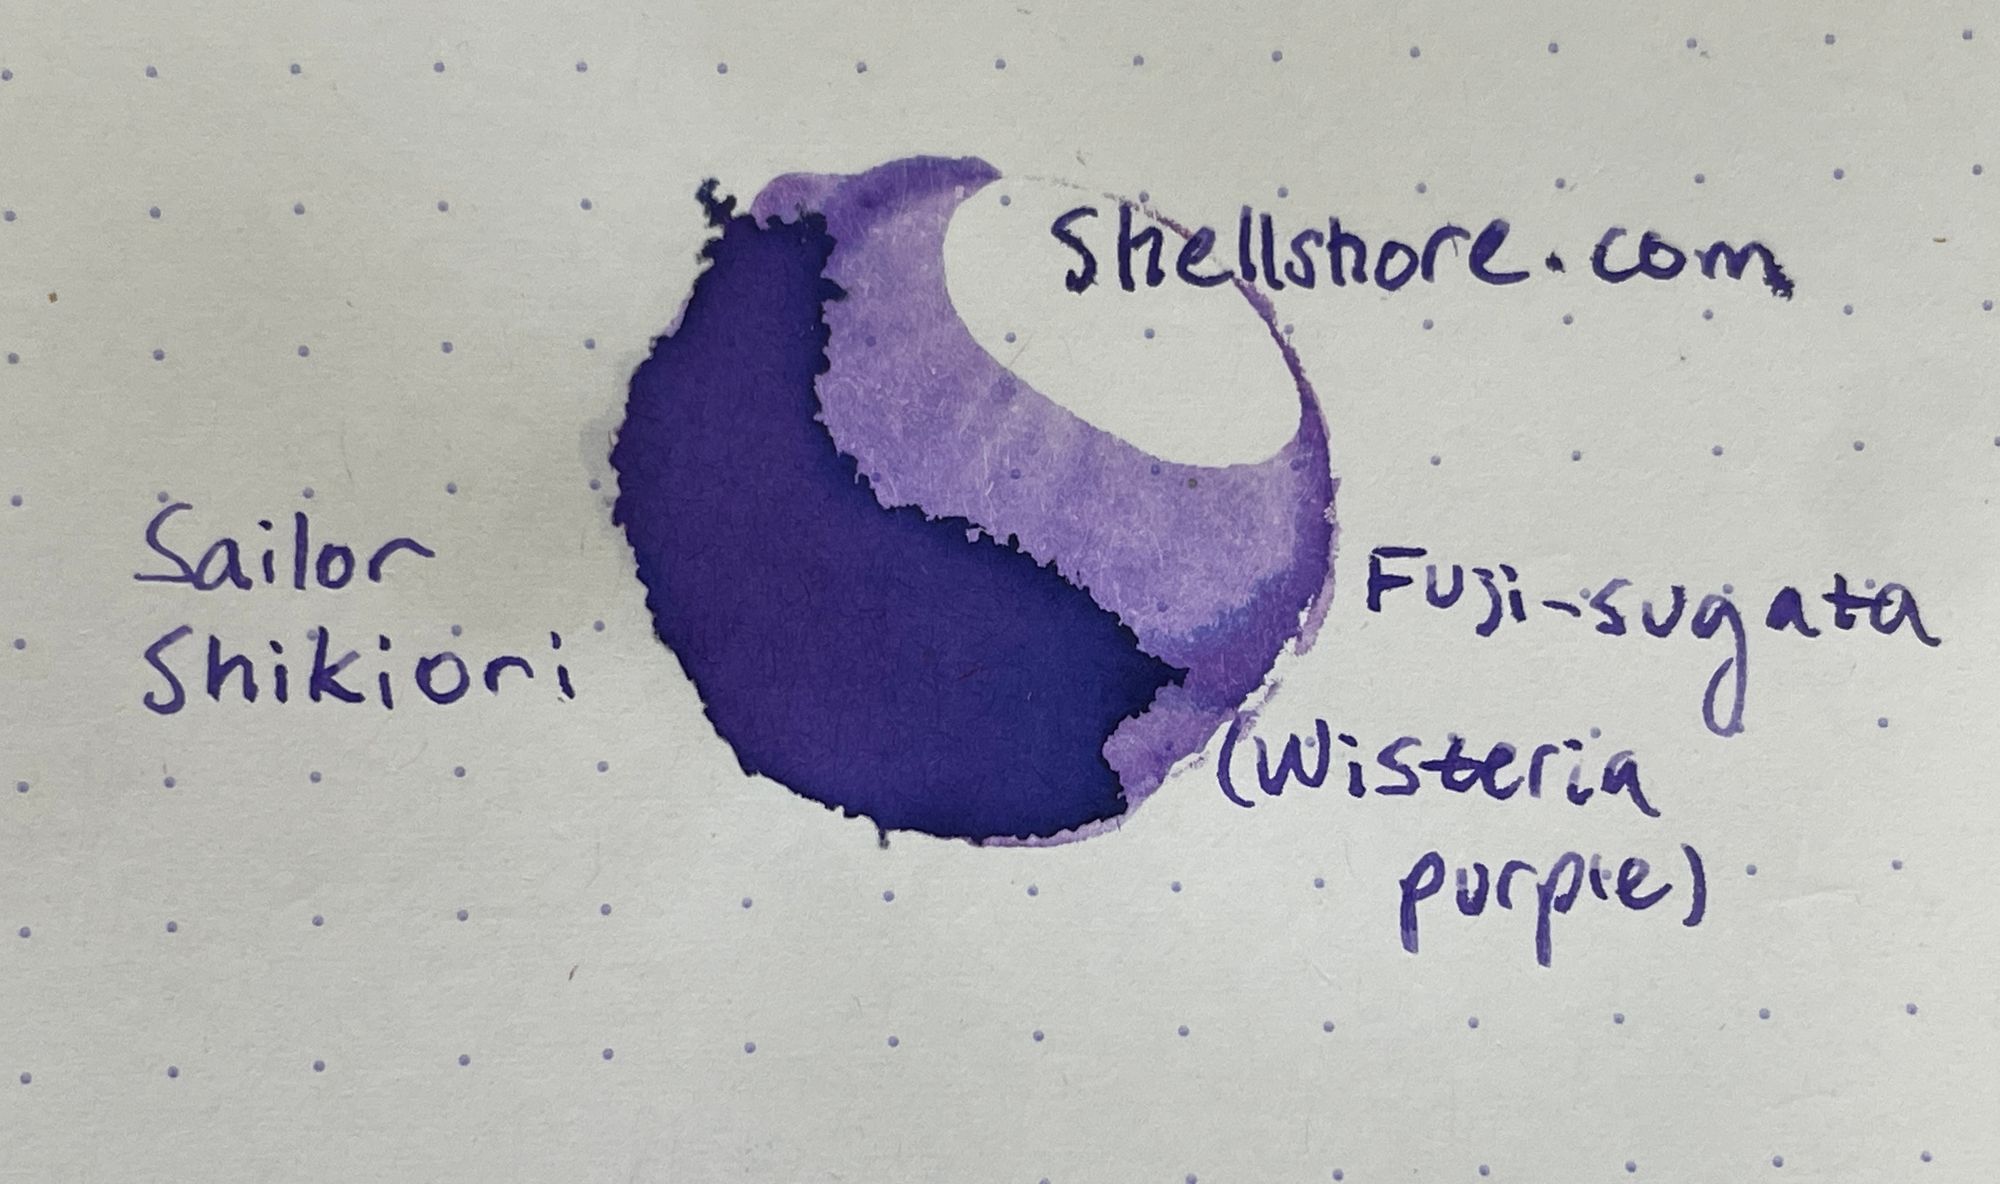 Shellshore.com
Sailor
Shikiori
Fuji-sugata
(Wisteria
purple)